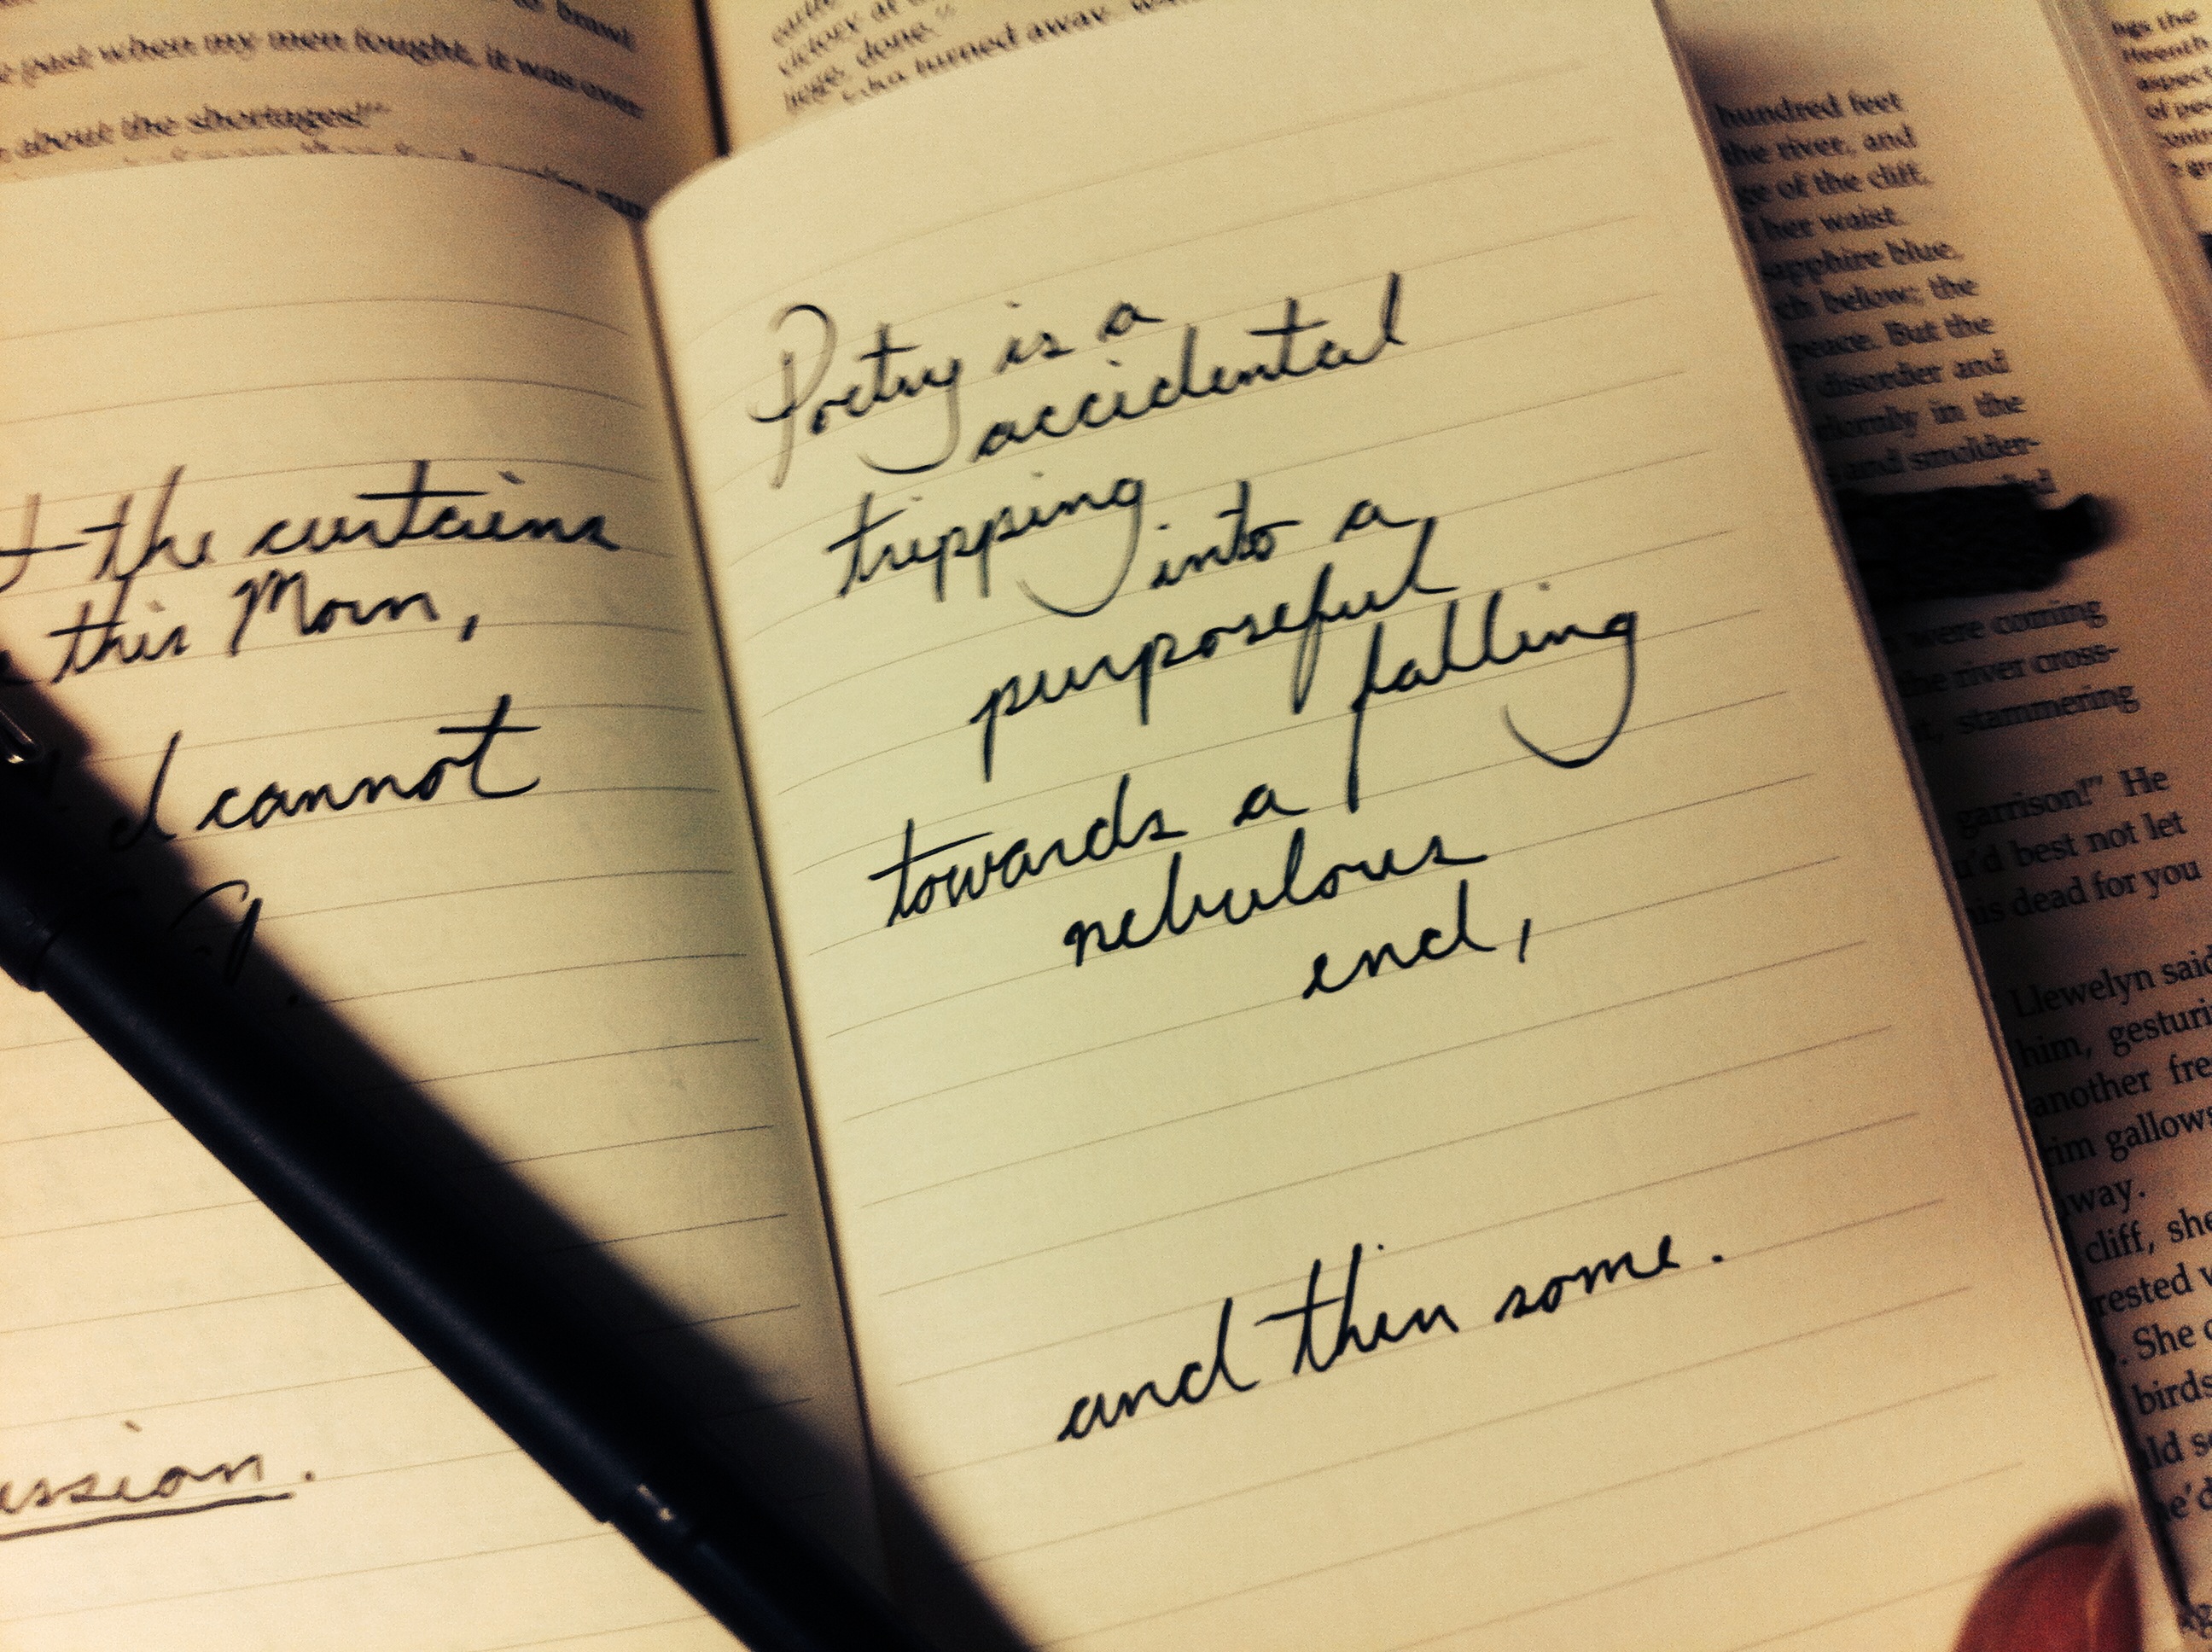 brawl
past when my men fought, it was over
about the shortages!"
victory at
done."
turned away
the curtains
this Morn,
I cannot
Poetry is a
accidental
tripping
into a
purposeful
falling
towards a
nebulous
end,
and then some.
hundred feet
the river, and
of the cliff,
her waist.
sapphire blue,
below; the
peace. But the
disorder and
in the
and smolder-
were coming
the river cross-
stammering
garrison!" He
best not let
dead for you
Llewelyn said
him,
another
gallows
cliff, she
She
birds
the
of